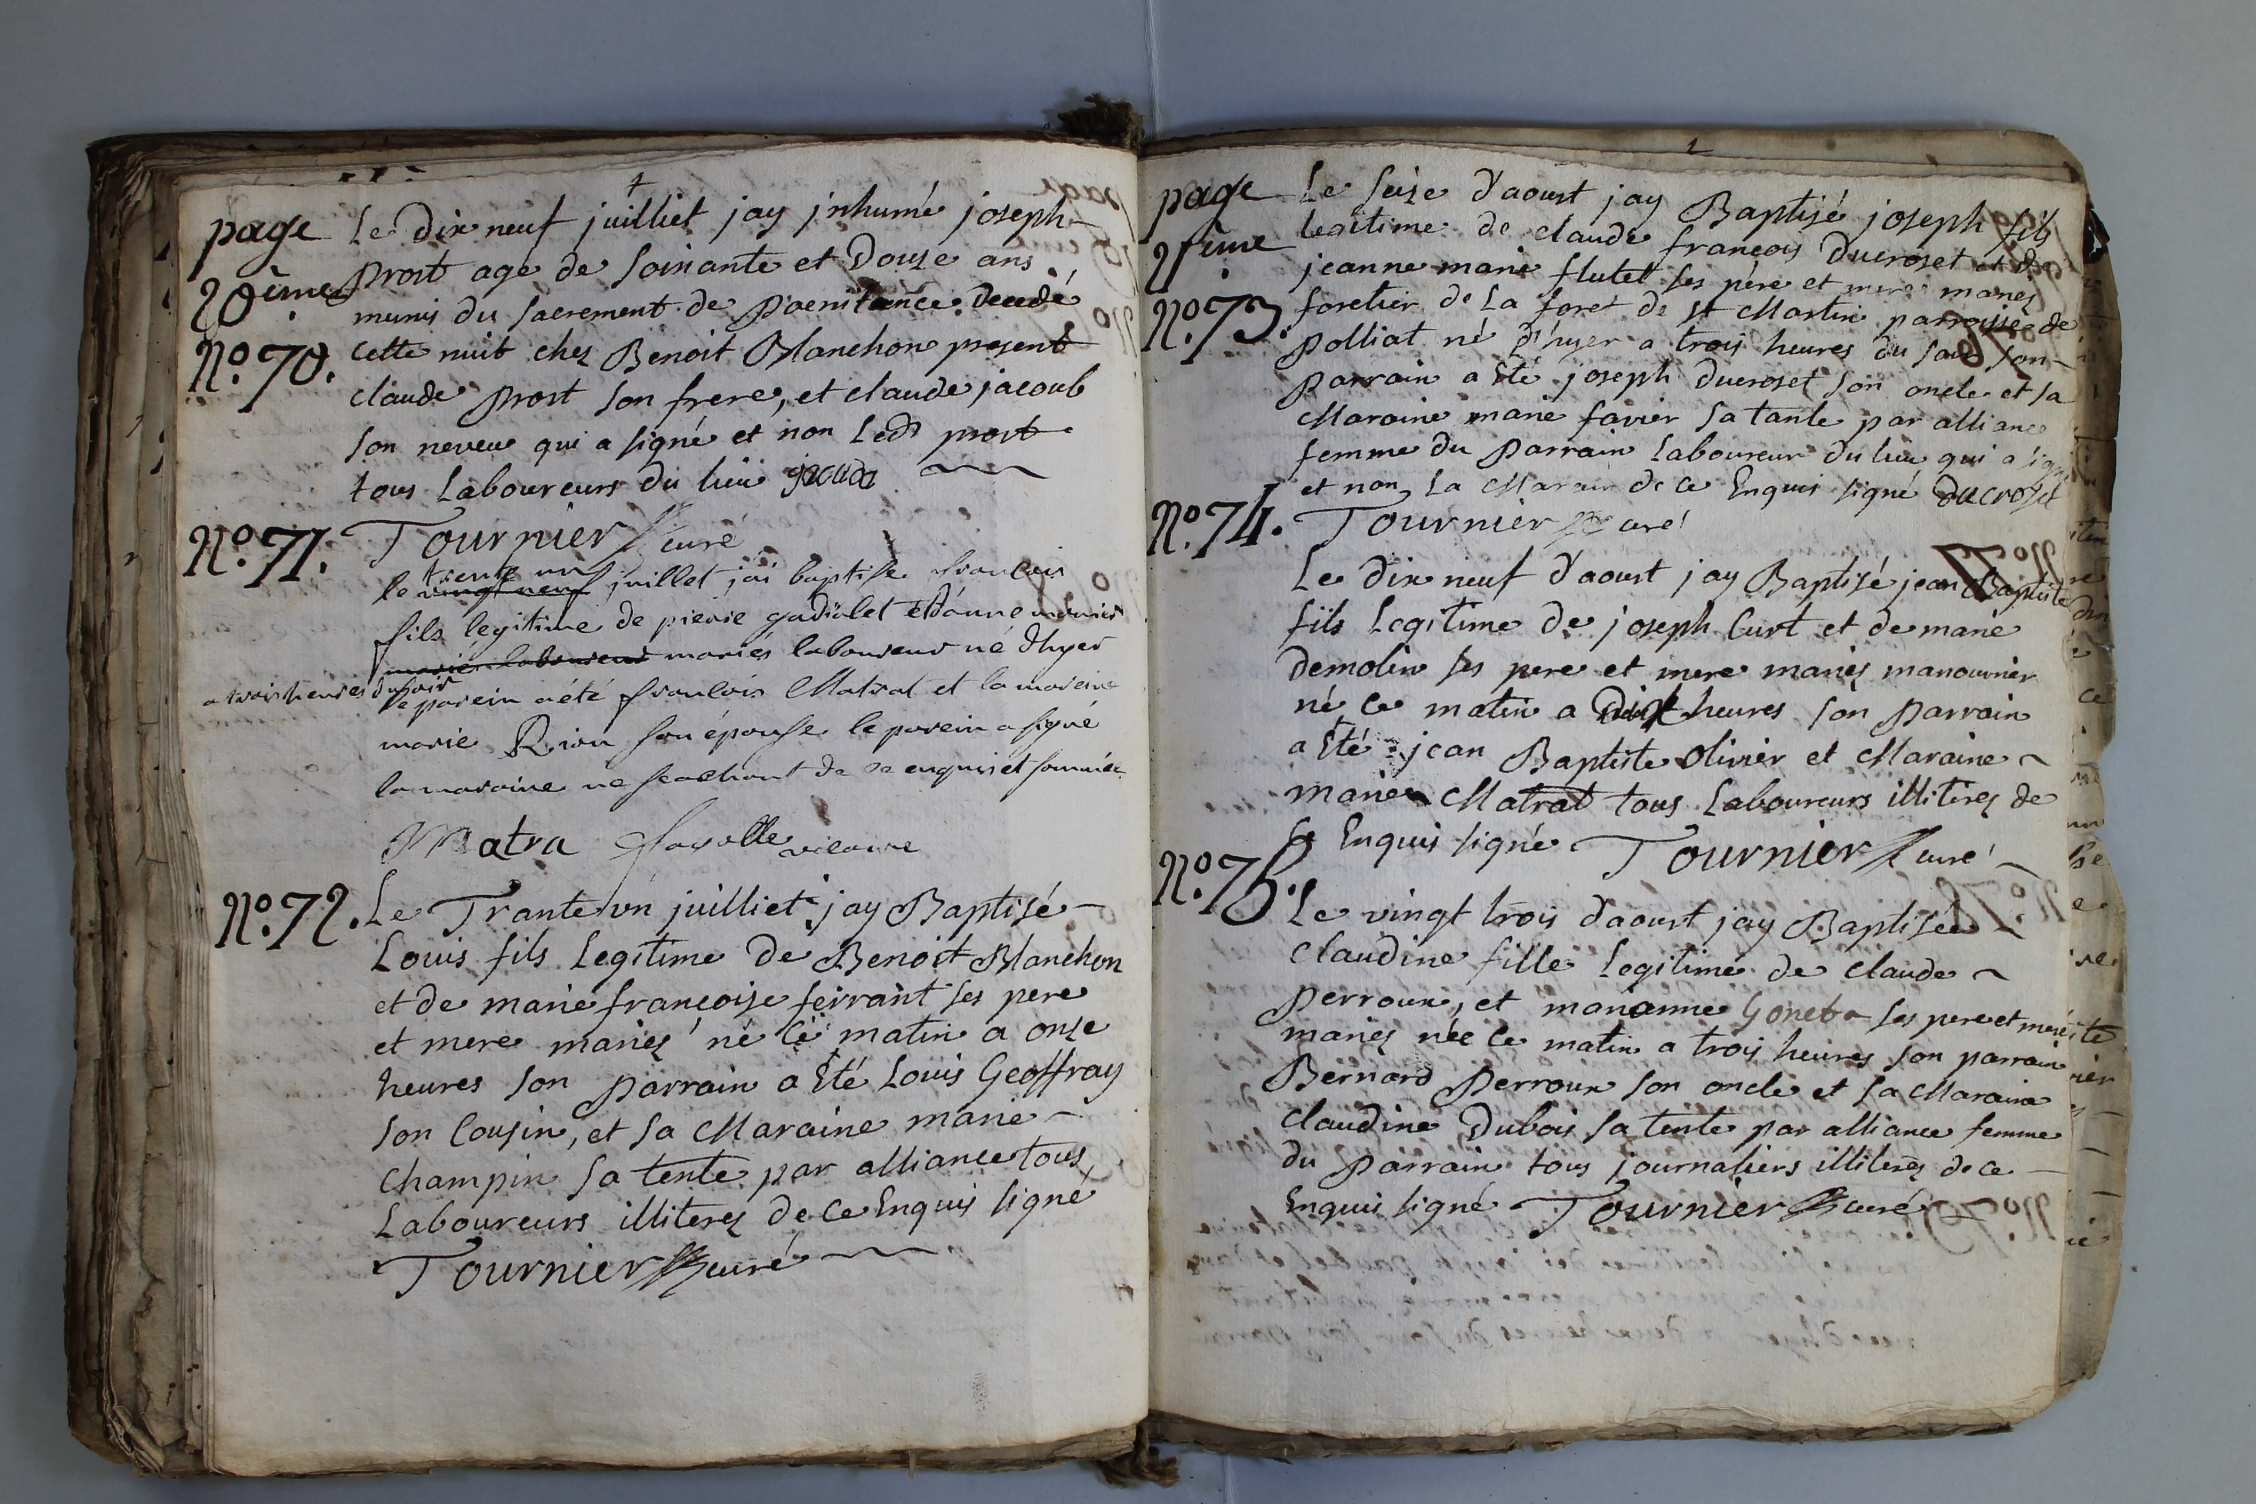 page
20ème
Le Dix neuf juilliet jay jnhumé joseph
prost age de soixante et Douze ans
munis du sacrement de poenitance. Decedé
No. 70.
cette nuit chez Benoit Blanchon present
claude prost son frere, et claude jacoub
son neveu qui a signé et non Ledt prost
tous Laboureurs du lieu
Tournier curé
No. 71.
trente un
le vingt neuf juillet jai baptise francois
fils legitime de pierre gadiolet et d'anne
mariés laboureur mariés laboureur né dhyer
a trois heures du soir
le parein a été francois Matrat et la mareine
marie Rion son épouse le parein a signé
la maraine ne scachant de ce enquis et sommée
Matra vicaire
No. 72.
Le Trante un juilliet jay Baptisé
Louis fils Legitime De Benoit Blanchon
et de marie françoise ferrant ses pere
et mere mariéz né cé matin a onze
heures son parrain a Eté Louis Geoffray
son Cousin, et sa Maraine marie
champin sa tente par alliance tous
Laboureurs illiterez de ce Enquis signé
Tournier curé
page
21ème
Le seize d'aoust jay Baptisé joseph fils
legitime de claude françois Ducroset et de
jeanne marie flutet ses père et mere mariez
No. 73.
foretier de La foret de St Martin parroisse de
polliat né D'hyer a trois heures du soir son
parrain a Eté joseph Ducroset son oncle et sa
Maraine marie favier sa tante par alliance
femme du parrain Laboureur du lieu qui a signé
et non La Marain de ce Enquis signé ducroset
Tournier curé
No. 74.
Le Dix neuf d'aoust jay Baptisé jean Baptiste
fils Legitime de joseph Curt et de marie
demolin ses pere et mere mariéz manouvrier
né ce matin a heures son parrain
a Eté jean Baptiste olivier et Maraine
marie Matrat tous Laboureurs illiterez de
ce Enquis signé Tournier curé
No. 75.
Le vingt trois d'aoust jay Baptisée
claudine fille Legitime de claude
perroux, et marianne Gonet ses pere et mere
mariez née ce matin a trois heures son parrain
Bernard perroux son oncle et sa Maraine
claudine Dubois sa tente par alliance femme
du parrain tous journaliers illiterez de ce
Enquis signé Tournier curé